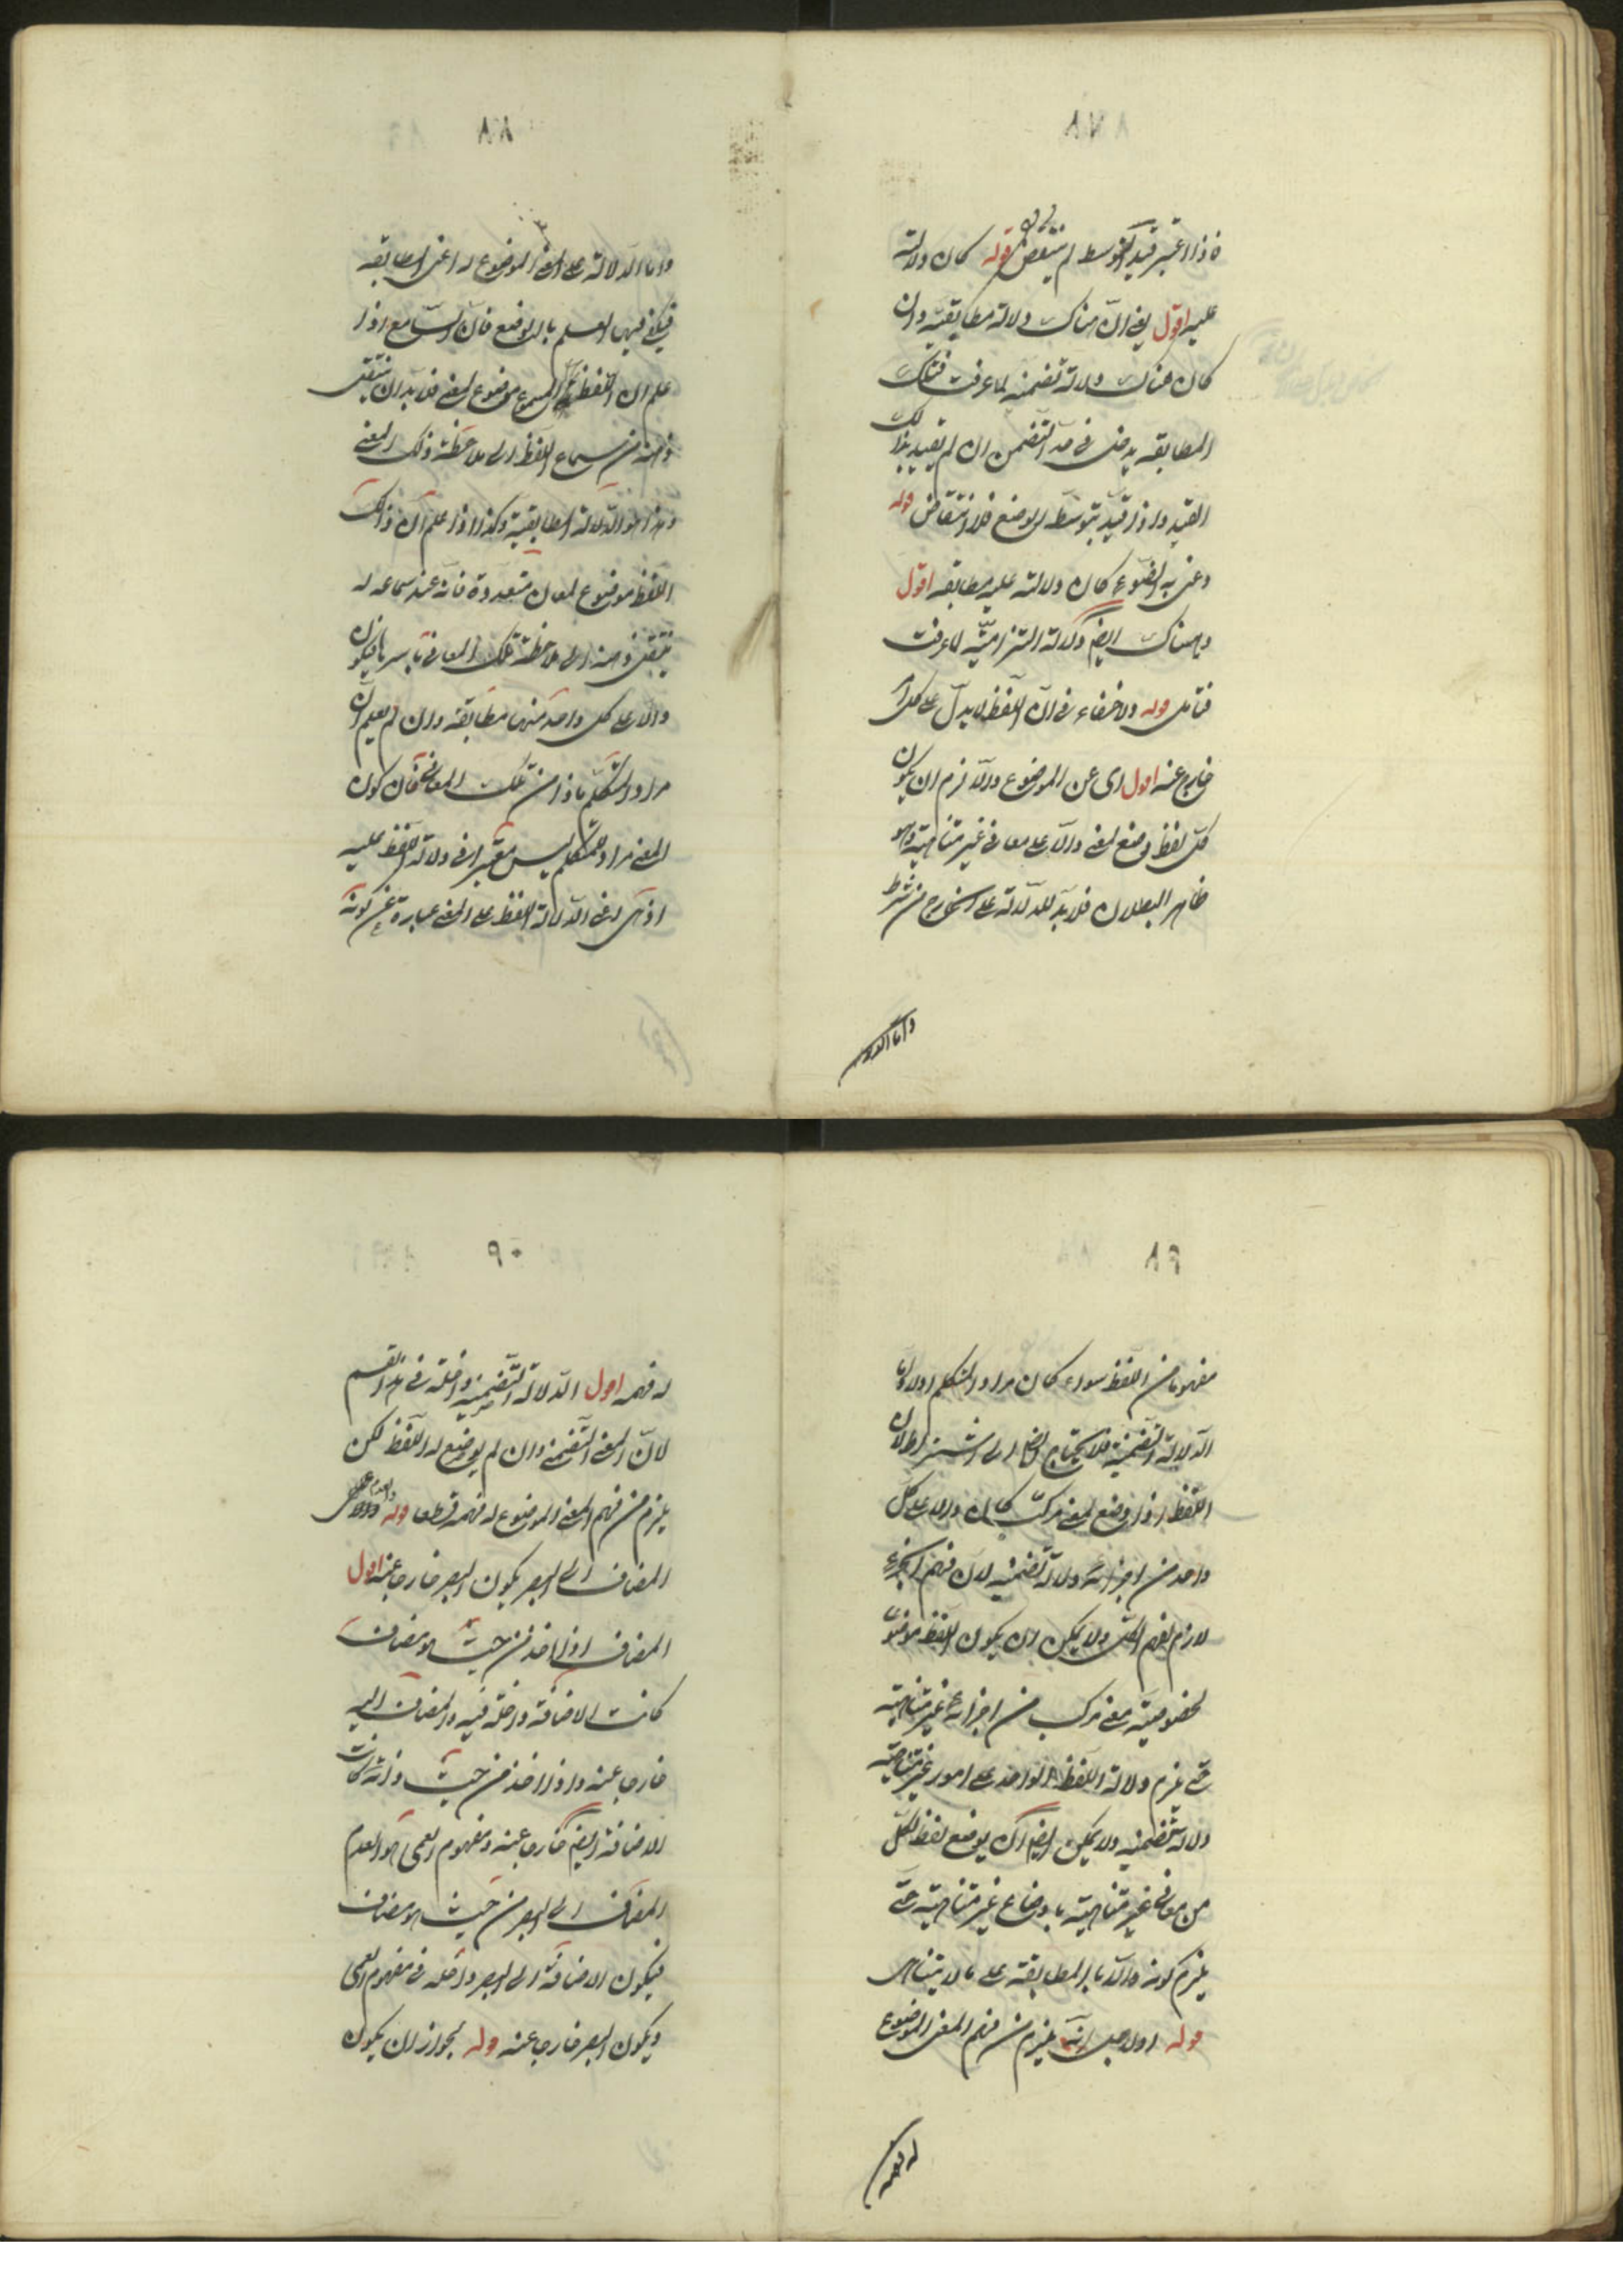 ٨٧
فاذا اعتبر قيد التوسط لم ينتقض قوله كان دلالته
عليه اقول يعنى ان هناك دلالة مطابقية وان
كان هناك دلالة تضمنية لما عرفت فتلك
المطابقة يدخل فى حد التضمن ان لم يقيد بذلك
القيد واذا قيد بتوسط الوضع فلا انتقاض قوله
وعنى به الضوء كان دلالته عليه مطابقة اقول
وهناك ايضا دلالة التزامية لما عرفت
فتامل قوله ولا خفاء فى ان اللفظ لا يدل على كل امر
خارج عنه اقول اى عن الموضوع والا لزم ان يكون
كل لفظ وضع لمعنى دالا على معانى غير متناهية وهو
ظاهر البطلان فلا بد للدلالة على الخارج من شرط
واما الدلالة
٨٨
واما الدلالة على المعنى الموضوع له اعنى المطابقة
فيكفى فيها العلم بالوضع فان السامع اذا
علم ان اللفظ المسموع موضوع لمعنى فلا بد ان ينتقل
ذهنه من سماع اللفظ الى ملاحظة ذلك المعنى
وهذا هو الدلالة المطابقية وكذا اذا علم ان ذلك
اللفظ موضوع لمعان متعددة فانه عند سماعه له
ينتقل ذهنه الى ملاحظة تلك المعانى باسرها فيكون
دالا على كل واحد منها مطابقة وان لم يعلم ان
مراد المتكلم ماذا من تلك المعانى فان كون
المعنى مراد المتكلم ليس معتبرا فى دلالة اللفظ عليه
اذ هى اعنى الدلالة اللفظ على المعنى عبارة عن كونه
٨٩
مفهوما من اللفظ سواء كان مراد المتكلم اولا واما
الدلالة التضمنية فلا يحتاج ايضا الى اشتراط لان
اللفظ اذا وضع لمعنى مركب كان دالا على كل
واحد من اجزائه دلالة تضمنية لان فهم الجزء
لازم لفهم الكل ولا يمكن ان يكون اللفظ موضوعا
لخصوصية معنى مركب من اجزاء غير متناهية
حتى يلزم دلالة اللفظ الواحد على امور غير متناهية
دلالة تضمنية ولا يمكن ايضا ان يوضع لفظ لكل
من معانى غير متناهية باوضاع غير متناهية حتى
يلزم كونه دالا بالمطابقة على ما لا يتناهى
قوله اولاجل انه يلزم من فهم المعنى الموضوع
له فهمه
٩٠
له فهمه اقول الدلالة التضمنية داخلة فى هذا القسم
لان المعنى التضمنى وان لم يوضع له اللفظ لكن
يلزم من فهم المعنى الموضوع له فهمه قطعا قوله والعدم
المضاف الى البصر يكون البصر خارجا عنه اقول
المضاف اذا اخذ من حيث هو مضاف
كانت الاضافة داخلة فيه والمضاف اليه
خارجا عنه واذا اخذ من حيث ذاته كانت
الاضافة ايضا خارجا عنه ومفهوم العمى هو العدم
المضاف الى البصر من حيث هو مضاف
فيكون الاضافة الى البصر داخلة فى مفهوم العمى
ويكون البصر خارجا عنه قوله لجواز ان يكون